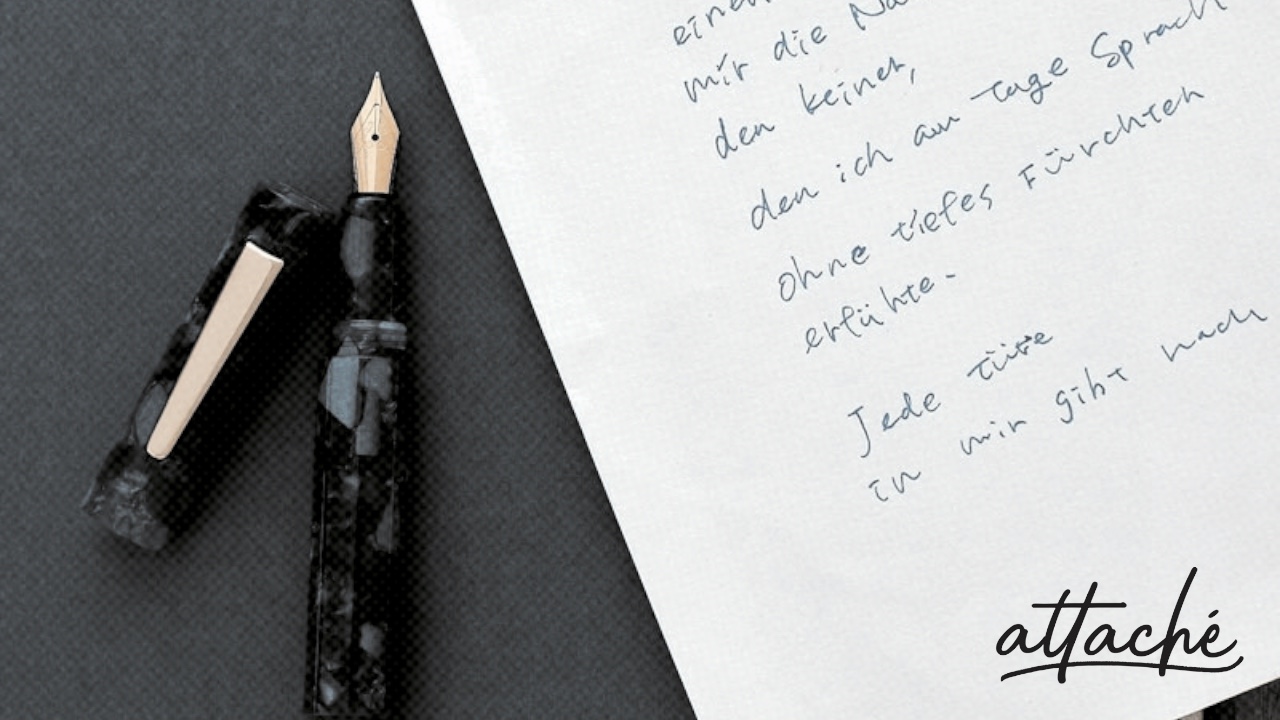 einen
mir die Na
den keiner,
den ich am Tage Sprach
ohne tiefes Fürchten
erfühte-
Jede türe
in mir gibt nach
attaché